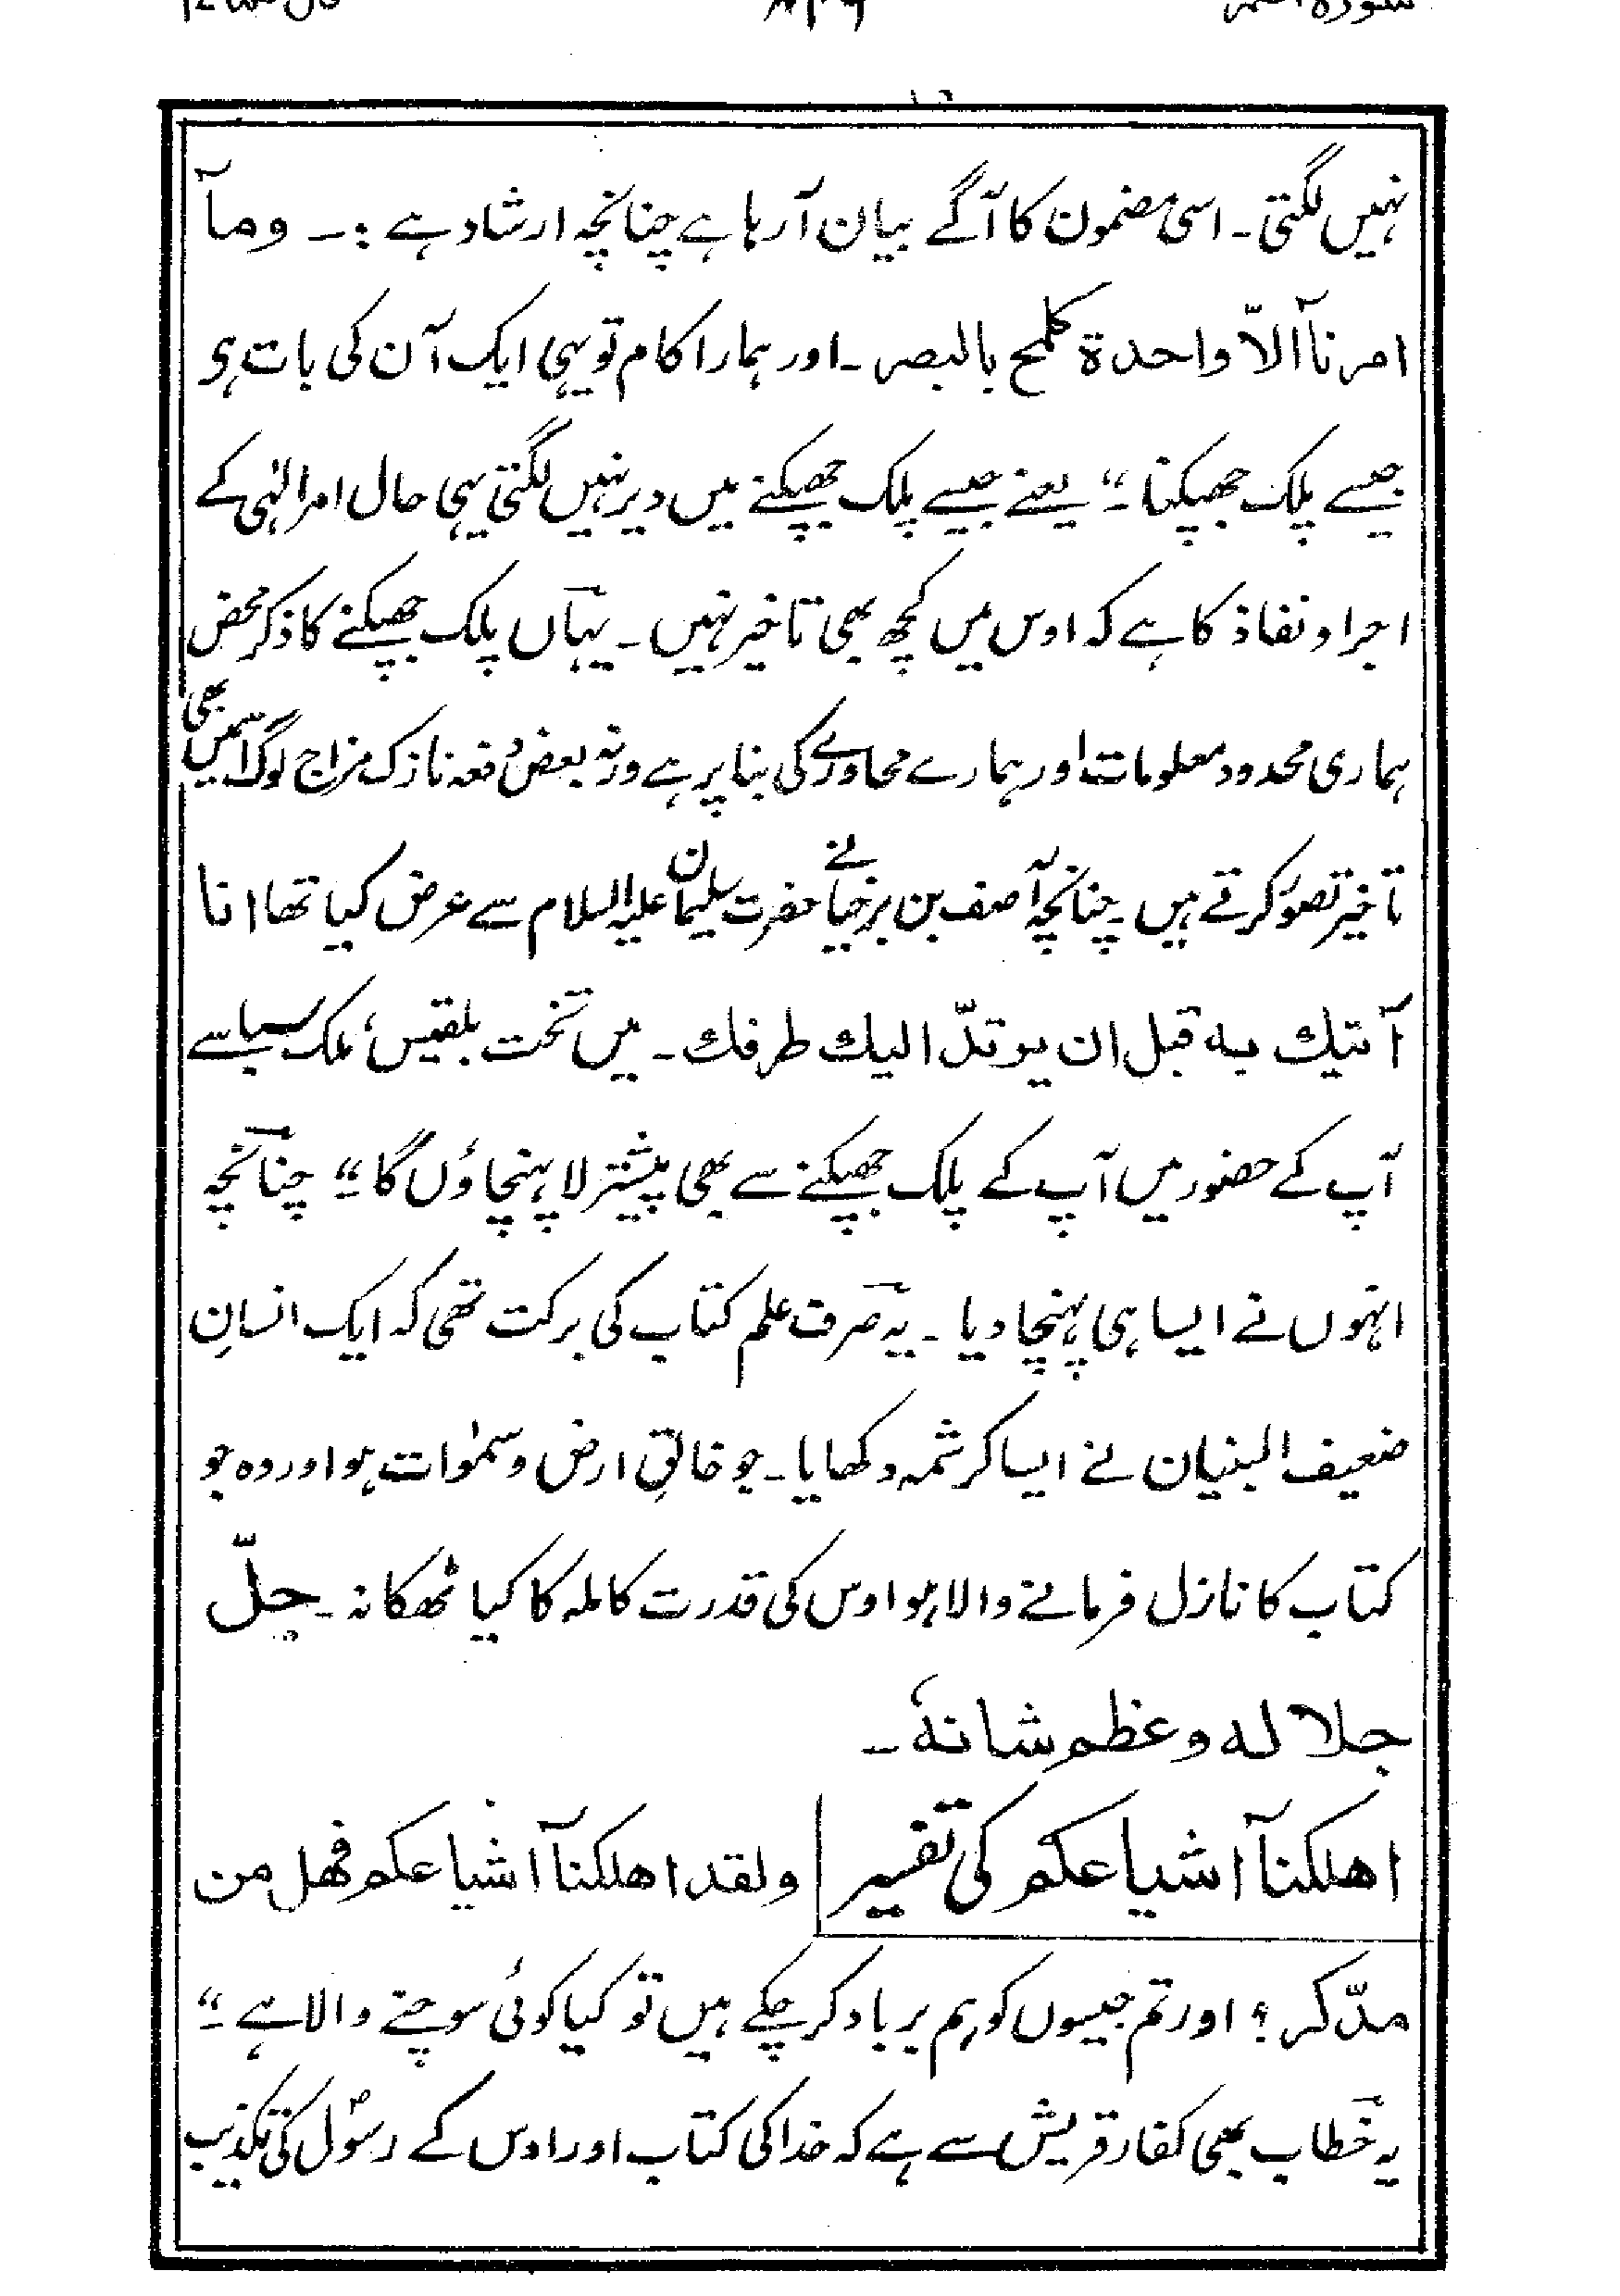 نہیں لگتی۔ اسی مضمون کا آگے بیان آرہا ہے چنانچہ ارشاد ہے :۔ ومآ
امرنآ الّا واحدة کلمح بالبصر ۔ اور ہمارا کام تو یہی ایک آن کی بات ہی
جیسے پلک جھپکنا۔“ یعنے جیسے پلک جھپکنے میں دیر نہیں لگتی یہی حال امر الٰہی کے
اجرا و نفاذ کا ہے کہ اوس میں کچھ بھی تاخیر نہیں۔ یہاں پلک جھپکنے کا ذکر محض
ہماری محدود معلومات اور ہمارے محاورے کی بنا پر ہے ورنہ بعض دفعہ نازک مزاج لوگ اسمیں بھی
تاخیر تصوّر کرتے ہیں۔ چنانچہ آصف بن برخیا نے حضرت سلیمان علیہ السلام سے عرض کیا تھا انا
آتیك به قبل ان یرتدّ الیك طرفك ۔ میں تخت بلقیس، ملک سبا سے
آپ کے حضور میں آپ کے پلک جھپکنے سے بھی پیشتر لا پہنچاؤں گا۔“ چنانچہ
انہوں نے ایسا ہی پہنچا دیا۔ یہ صرف علم کتاب کی برکت تھی کہ ایک انسانِ
ضعیف البنیان نے ایسا کرشمہ دکھایا۔ جو خالقِ ارض و سمٰوات ہو اور وہ جو
کتاب کا نازل فرمانے والا ہو اوس کی قدرت کاملہ کا کیا ٹھکانہ۔ جلّ
جلاله وعظم شانهٗ ۔
اهلکنآ اشیاعکم کی تفسیر ولقد اهلکنآ اشیاعکم فهل من
مدّکر ؟ اور تم جیسوں کو ہم برباد کر چکے ہیں تو کیا کوئی سوچنے والا ہے۔“
یہ خطاب بھی کفار قریش سے ہے کہ خدا کی کتاب اور اوس کے رسولؐ کی تکذیب